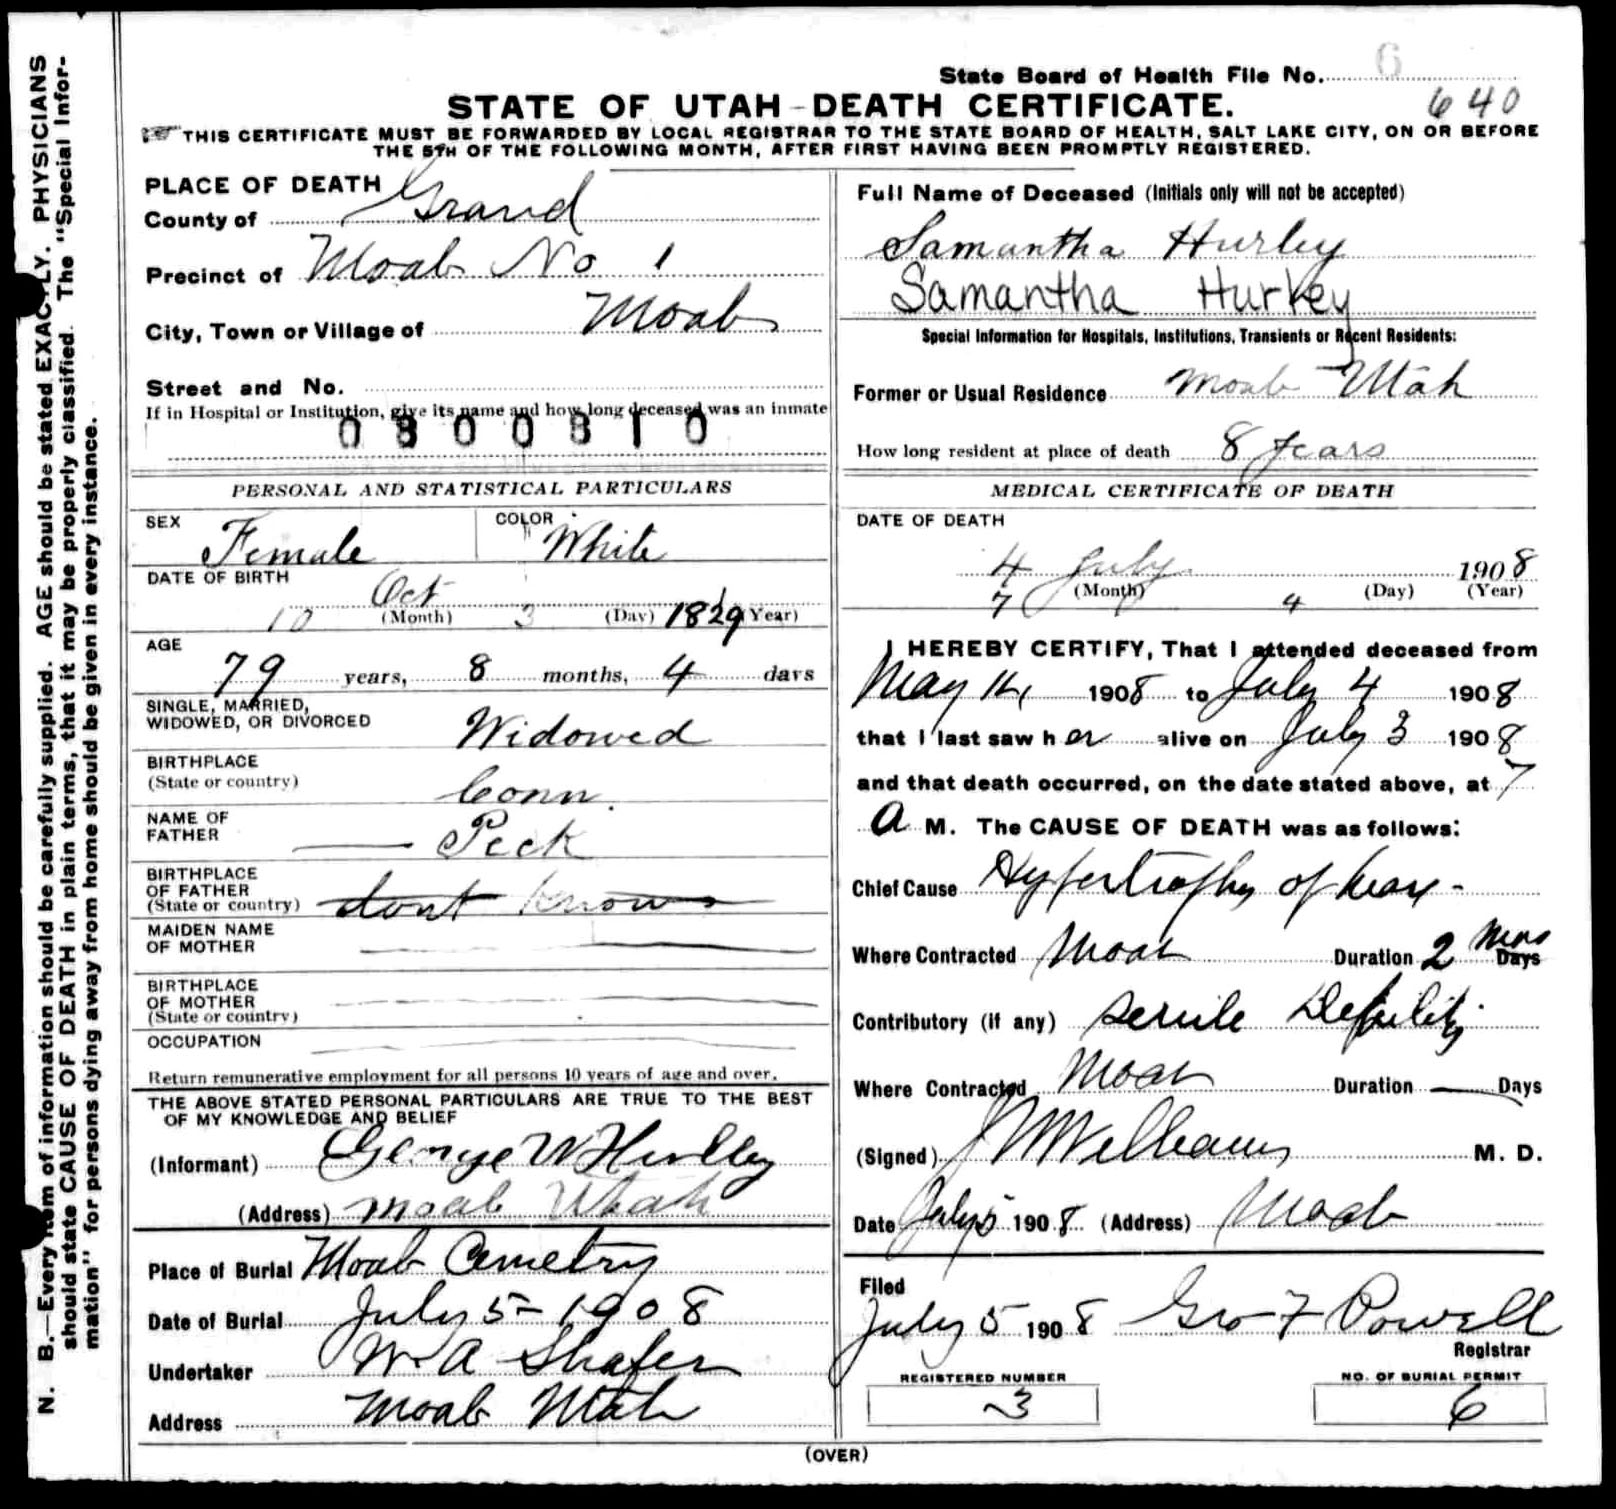 State Board of Health File No. 6
640
STATE OF UTAH - DEATH CERTIFICATE.
THIS CERTIFICATE MUST BE FORWARDED BY LOCAL REGISTRAR TO THE STATE BOARD OF HEALTH, SALT LAKE CITY, ON OR BEFORE
THE 5TH OF THE FOLLOWING MONTH, AFTER FIRST HAVING BEEN PROMPTLY REGISTERED.
N. B.—Every item of information should be carefully supplied. AGE should be stated EXACTLY. PHYSICIANS
should state CAUSE OF DEATH in plain terms, that it may be properly classified. The "Special Infor-
mation" for persons dying away from home should be given in every instance.
PLACE OF DEATH
County of Grand
Precinct of Moab No 1
City, Town or Village of Moab
Street and No.
If in Hospital or Institution, give its name and how long deceased was an inmate
0300810
PERSONAL AND STATISTICAL PARTICULARS
SEX Female COLOR White
DATE OF BIRTH
Oct
10 (Month) 3 (Day) 1829 (Year)
AGE
79 years, 8 months, 4 days
SINGLE, MARRIED,
WIDOWED, OR DIVORCED Widowed
BIRTHPLACE
(State or country) Conn.
NAME OF
FATHER — Peck
BIRTHPLACE
OF FATHER
(State or country) dont know
MAIDEN NAME
OF MOTHER
BIRTHPLACE
OF MOTHER
(State or country)
OCCUPATION
Return remunerative employment for all persons 10 years of age and over.
THE ABOVE STATED PERSONAL PARTICULARS ARE TRUE TO THE BEST
OF MY KNOWLEDGE AND BELIEF
(Informant) George W Hurley
(Address) Moab Utah
Place of Burial Moab Cemetry
Date of Burial July 5 - 1908
Undertaker W A Shafer
Address Moab Utah
Full Name of Deceased (Initials only will not be accepted)
Samantha Hurley
Samantha Hurley
Special Information for Hospitals, Institutions, Transients or Recent Residents:
Former or Usual Residence Moab Utah
How long resident at place of death 8 years
MEDICAL CERTIFICATE OF DEATH
DATE OF DEATH
4 July 1908
7 (Month) 4 (Day) (Year)
I HEREBY CERTIFY, That I attended deceased from
May 1908 to July 4 1908
that I last saw her alive on July 3 1908
and that death occurred, on the date stated above, at 7
A M. The CAUSE OF DEATH was as follows:
Chief Cause Hypertrophy of heart
Where Contracted Moab Duration 2 Mos Days
Contributory (if any) Senile Debility
Where Contracted Moab Duration — Days
(Signed) J W Williams M. D.
Date July 5 1908 (Address) Moab
Filed
July 5 1908 Geo F Powell
Registrar
REGISTERED NUMBER NO. OF BURIAL PERMIT
3 6
(OVER)